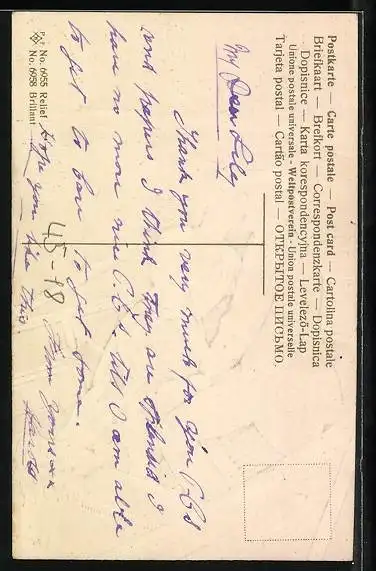 Postkarte — Carte postale — Post card — Cartolina postale
Briefkaart — Brefkort — Correspondenzkarte — Dopisnica
Dopisnice — Karta korespondencyjna — Levelező-Lap
Unione postale universale - Weltpostverein - Union postale universelle
Tarjeta postal — Cartão postal — ОТКРЫТОЕ ПИСЬМО.
My Dear Lily
Thank you very much for your P.Cs
and papers I think they are splendid I
have no more nice P.C's. till I am able
to get to town to get some.
Hope you like this
45-98
From yours
No. 6955 Relief
No. 6958 Brillant